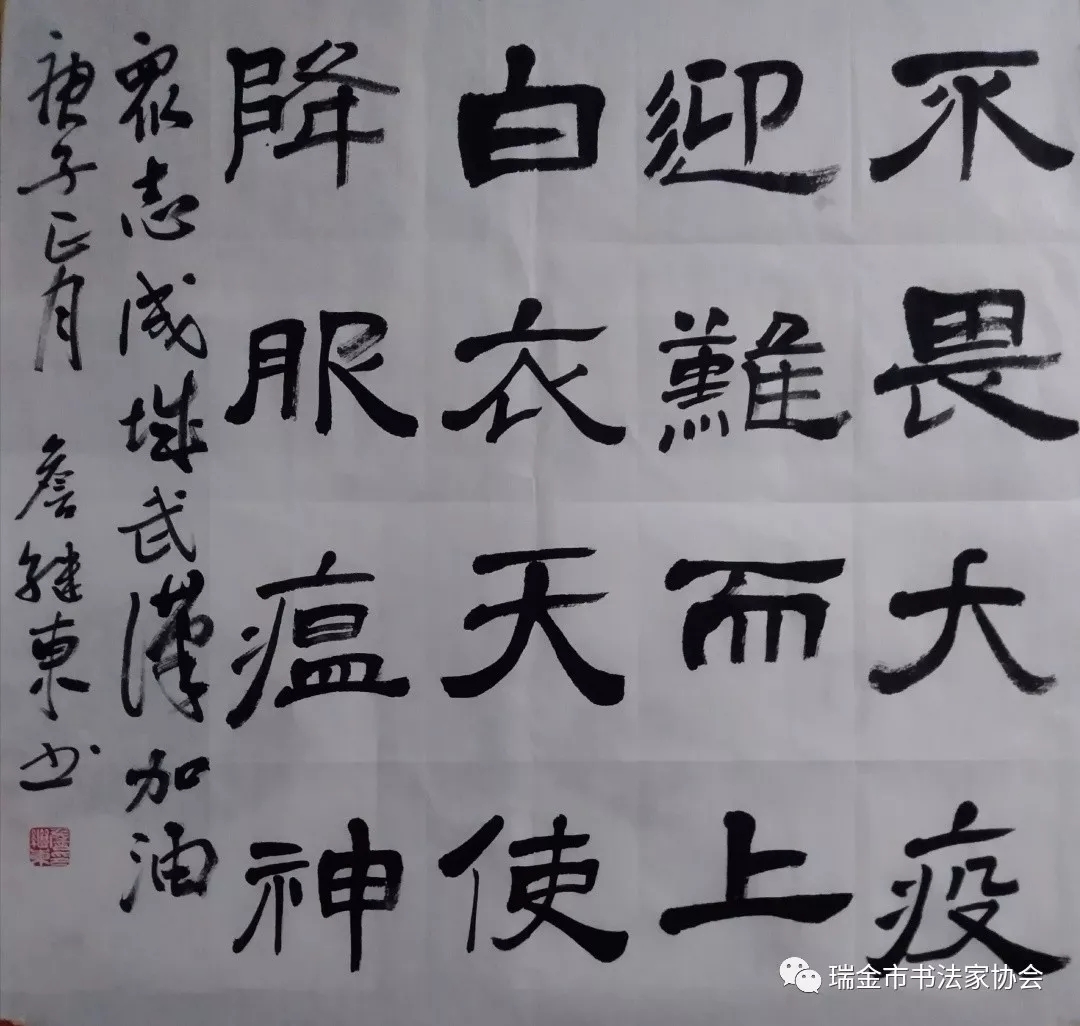 不畏大疫
迎難而上
白衣天使
降服瘟神
眾志成城武漢加油
庚子正月 詹継東书
瑞金市书法家协会